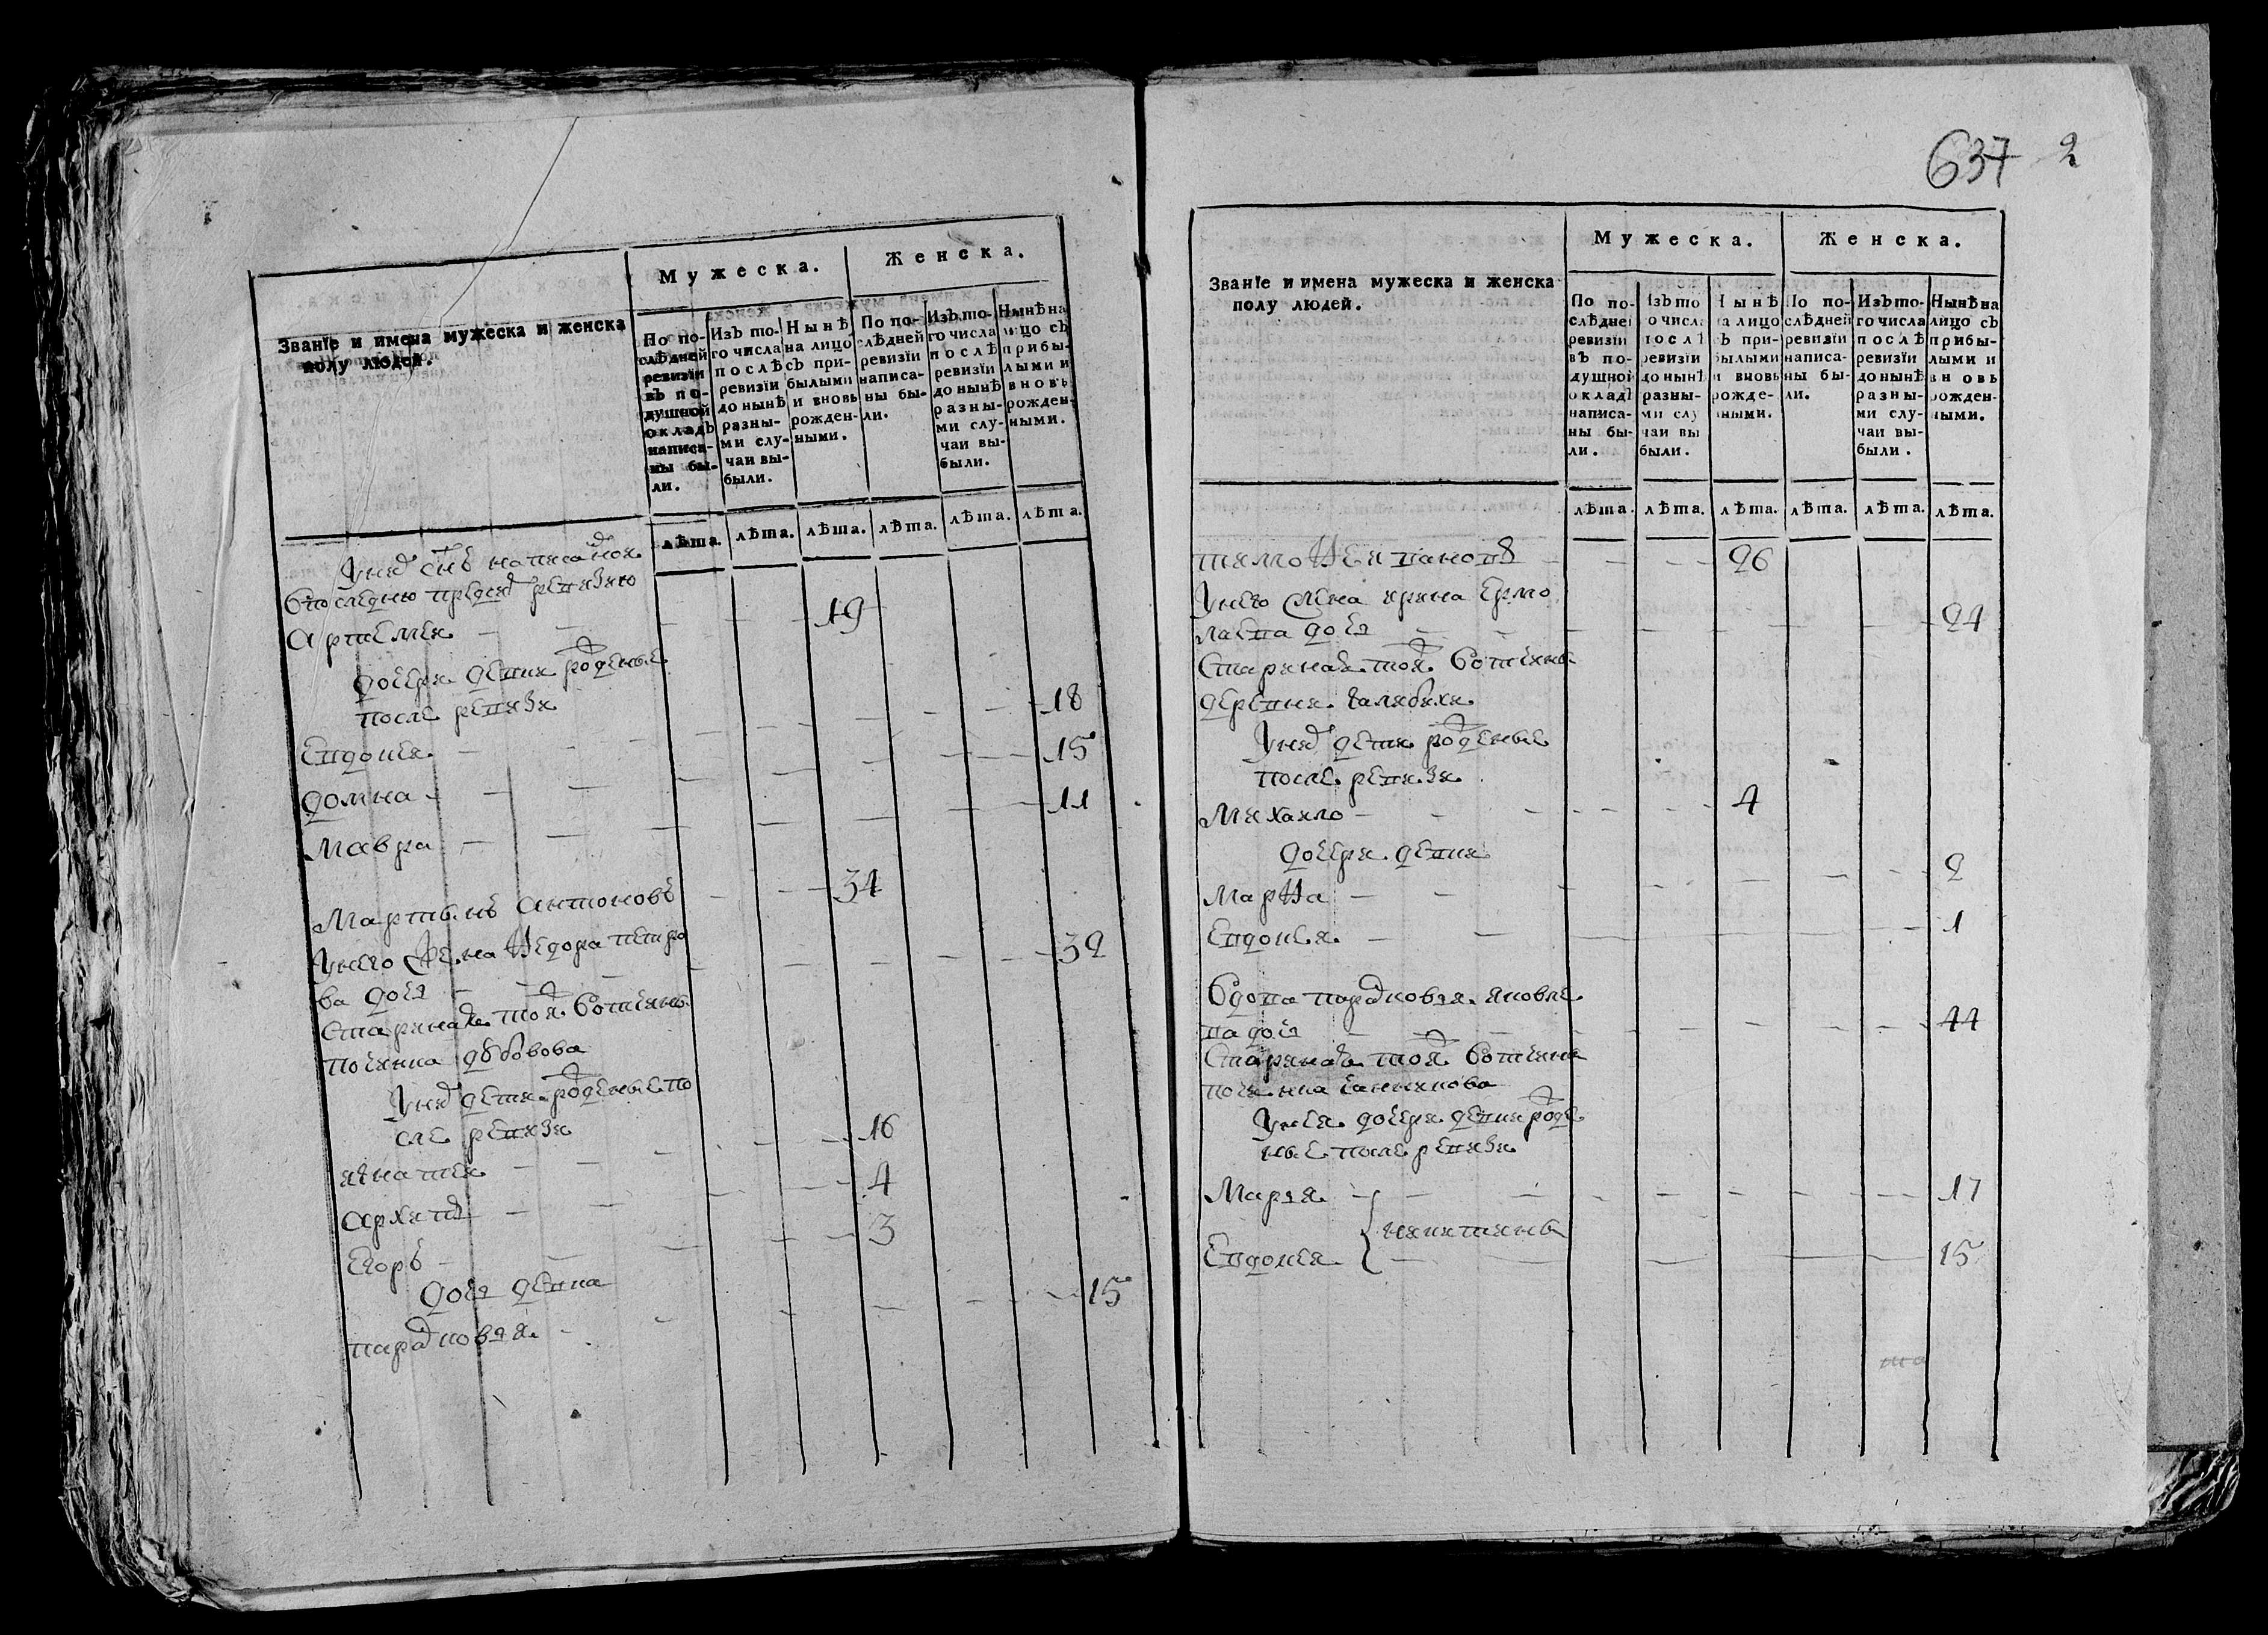 Званіе и имена мужеска и женска
полу людей.
Мужеска.
Женска.
По по-
слѣдней
ревизіи
въ по-
душной
окладѣ
написа-
ны бы-
ли.
Изъ то-
го числа
послѣ
ревизіи
до нынѣ
разны-
ми слу-
чаи вы-
были.
Нынѣ
на лицо
съ при-
былыми
и вновь
рожден-
ными.
По по-
слѣдней
ревизіи
написа-
ны бы-
ли.
Изъ то-
го числа
послѣ
ревизіи
до нынѣ
разны-
ми слу-
чаи вы-
были.
Нынѣ на
лицо съ
прибы-
лыми и
вновь
рожден-
ными.
лѣта. лѣта. лѣта. лѣта. лѣта. лѣта.
У них снъ написаной
в последнюю пред сим ревизию
Артемей 19
дочери девки рожденые
после ревизи
Евдокея 18
домна 15
Мавра 11
Мартынъ Антоновъ 34
У него жена Ѳедора петро
ва дочь 32
Стариная той вотчины
починка дубовова
У них дети рожденые по
сле ревизи
игнатеи 16
Архипъ 4
Егоръ 3
дочь девка
парасковья 15
637 2
Званіе и имена мужеска и женска
полу людей.
Мужеска.
Женска.
По по-
слѣдней
ревизіи
въ по-
душной
окладѣ
написа-
ны бы-
ли.
Изъ то
го числа
послѣ
ревизіи
до нынѣ
разны-
ми слу
чаи вы
были.
Нынѣ
на лицо
съ при-
былыми
и вновь
рожде-
ными.
По по-
слѣдней
ревизіи
написа-
ны бы-
ли.
Изъ то-
го числа
послѣ
ревизіи
до нынѣ
разны-
ми слу-
чаи вы-
были.
Нынѣ на
лицо съ
прибы-
лыми и
вновь
рожден-
ными.
лѣта. лѣта. лѣта. лѣта. лѣта. лѣта.
тимоѲеи 26
У него жена ирина Ермо
лаева дочь 24
Стариная той вотчины
деревни галибихи
У них дети рожденые
после ревизи
Михаило 4
дочери девки
МарѲа 2
Евдокея 1
вдова парасковья яковле
ва дочь 44
Стариная той вотчины
починка
У неи дочери девки рожде
ные после ревизи
Марья 17
никитины
Евдокея 15